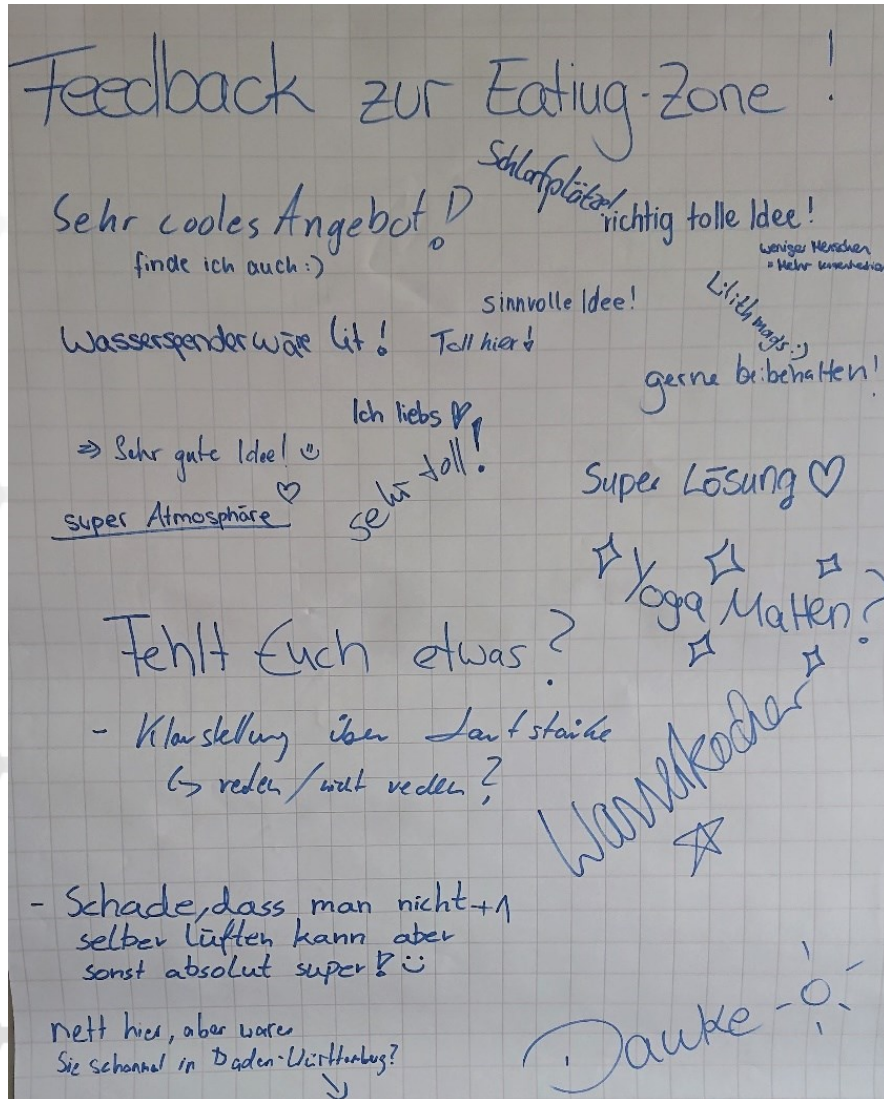 Feedback zur Eating-Zone!
Schlafplätze!
Sehr cooles Angebot!
richtig tolle Idee!
finde ich auch :)
weniger Menschen
= Mehr
sinnvolle Idee!
Lilith mags :)
Wasserspender wäre lit!
Toll hier!
gerne beibehalten!
Ich liebs ♡
⇒ Sehr gute Idee! ☺
sehr toll!
Super Lösung ♡
super Atmosphäre ♡
Yoga Matten?
Fehlt Euch etwas?
- Klarstellung über Lautstärke
↳ reden / nicht reden?
Wasserkocher
- Schade, dass man nicht +1
selber lüften kann aber
sonst absolut super! ☺
nett hier, aber waren
Sie schonmal in Baden-Württemberg?
Danke